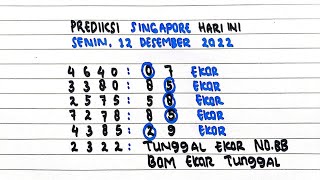 PREDIKSI SINGAPORE HARI INI
SENIN, 12 DESEMBER 2022
4 6 4 0 : 0 7 EKOR
3 3 8 0 : 8 5 EKOR
2 5 7 5 : 5 8 EKOR
7 2 7 8 : 8 0 EKOR
4 3 8 5 : 2 9 EKOR
2 3 2 2 : TUNGGAL EKOR NO.BB
BOM EKOR TUNGGAL